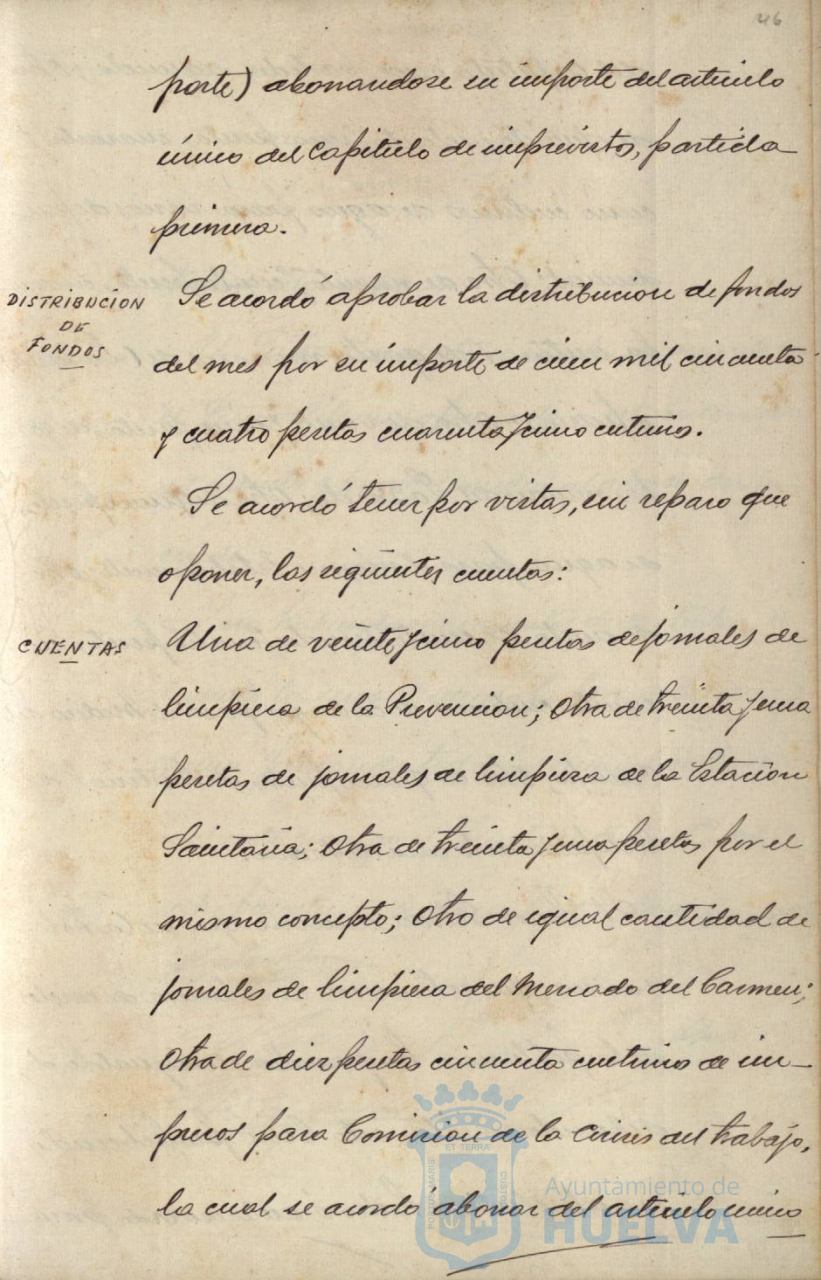 46
porte) abonandose su importe del articulo
único del Capitulo de imprevistos, partida
primera.
DISTRIBUCION
DE
FONDOS
Se acordó aprobar la distribucion de fondos
del mes por su importe de cien mil cincuenta
y cuatro pesetas cuarenta y cinco centimos.
Se acordó tener por vistas, sin reparo que
oponer, las siguientes cuentas:
CUENTAS
Una de veinte y cinco pesetas de jornales de
limpieza de la Prevencion; Otra de treinta y una
pesetas de jornales de limpieza de la Estacion
Sanitaria; Otra de treinta y una pesetas por el
mismo concepto; Otro de igual cantidad de
jornales de limpieza del Mercado del Carmen;
Otra de diez pesetas cincuenta centimos de im-
presos para Comision de la Crisis del trabajo,
la cual se acordó abonar del articulo unico
PORTUS MARIS
ET TERRA
CUSTODIA
Ayuntamiento de
HUELVA